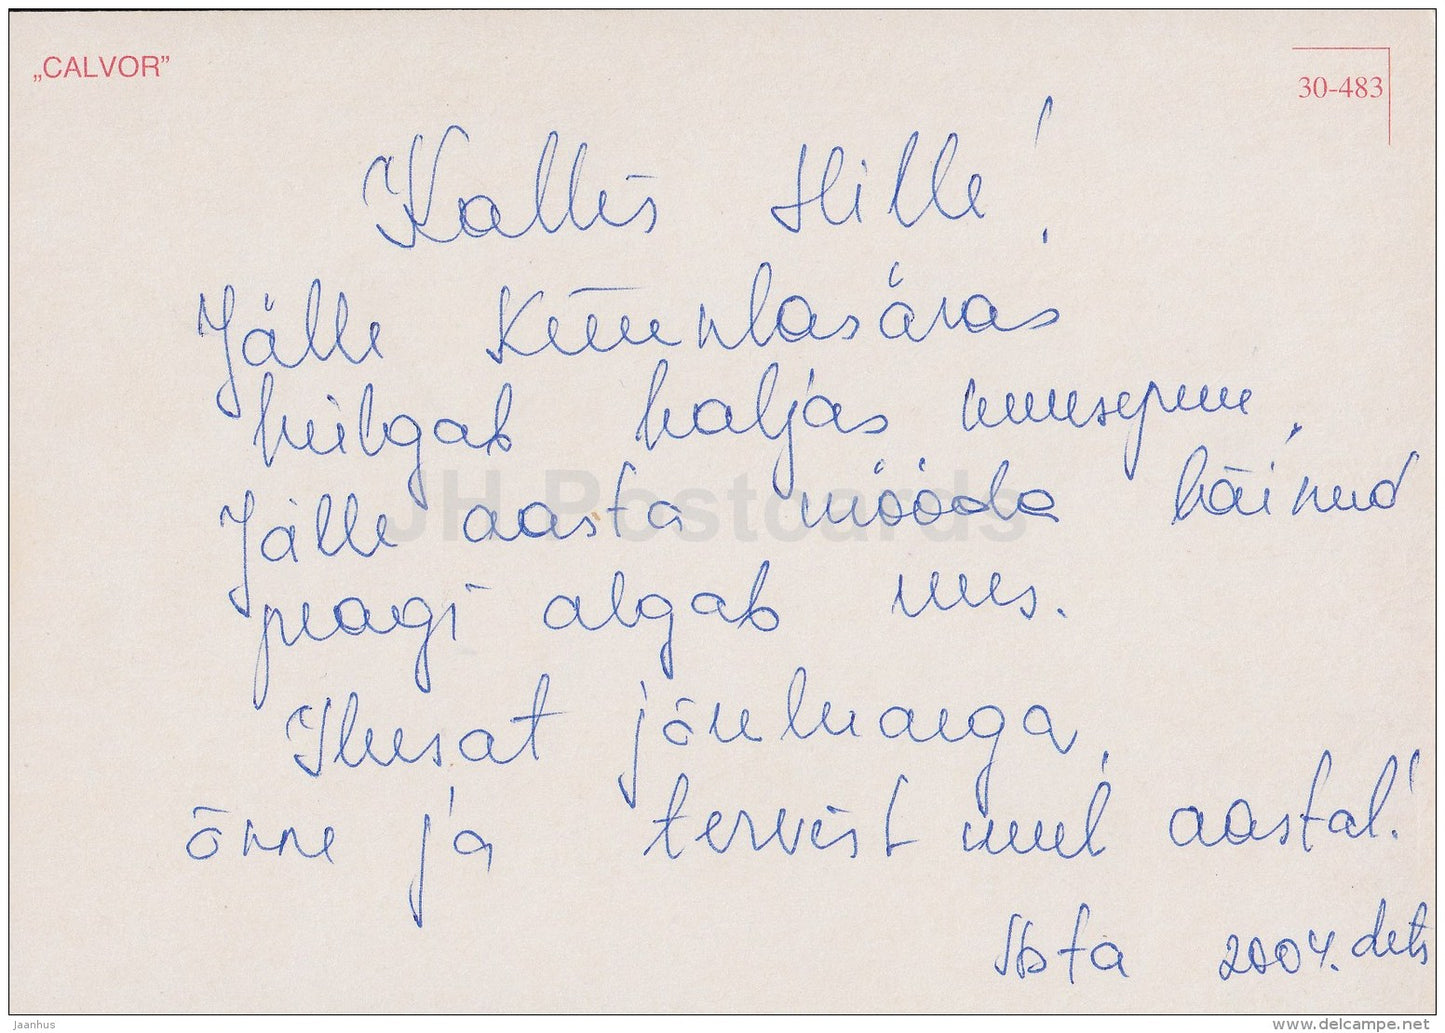 „CALVOR”
30-483
Kallis Hille!
Jälle küünlasäras
hiilgab haljas kuusepuu.
Jälle aasta mööda läinud
peagi algab uus.
Ilusat jõuluaega,
õnne ja tervist uuel aastal!
2004. dets
JH Postcards
jaanhus
www.delcampe.net